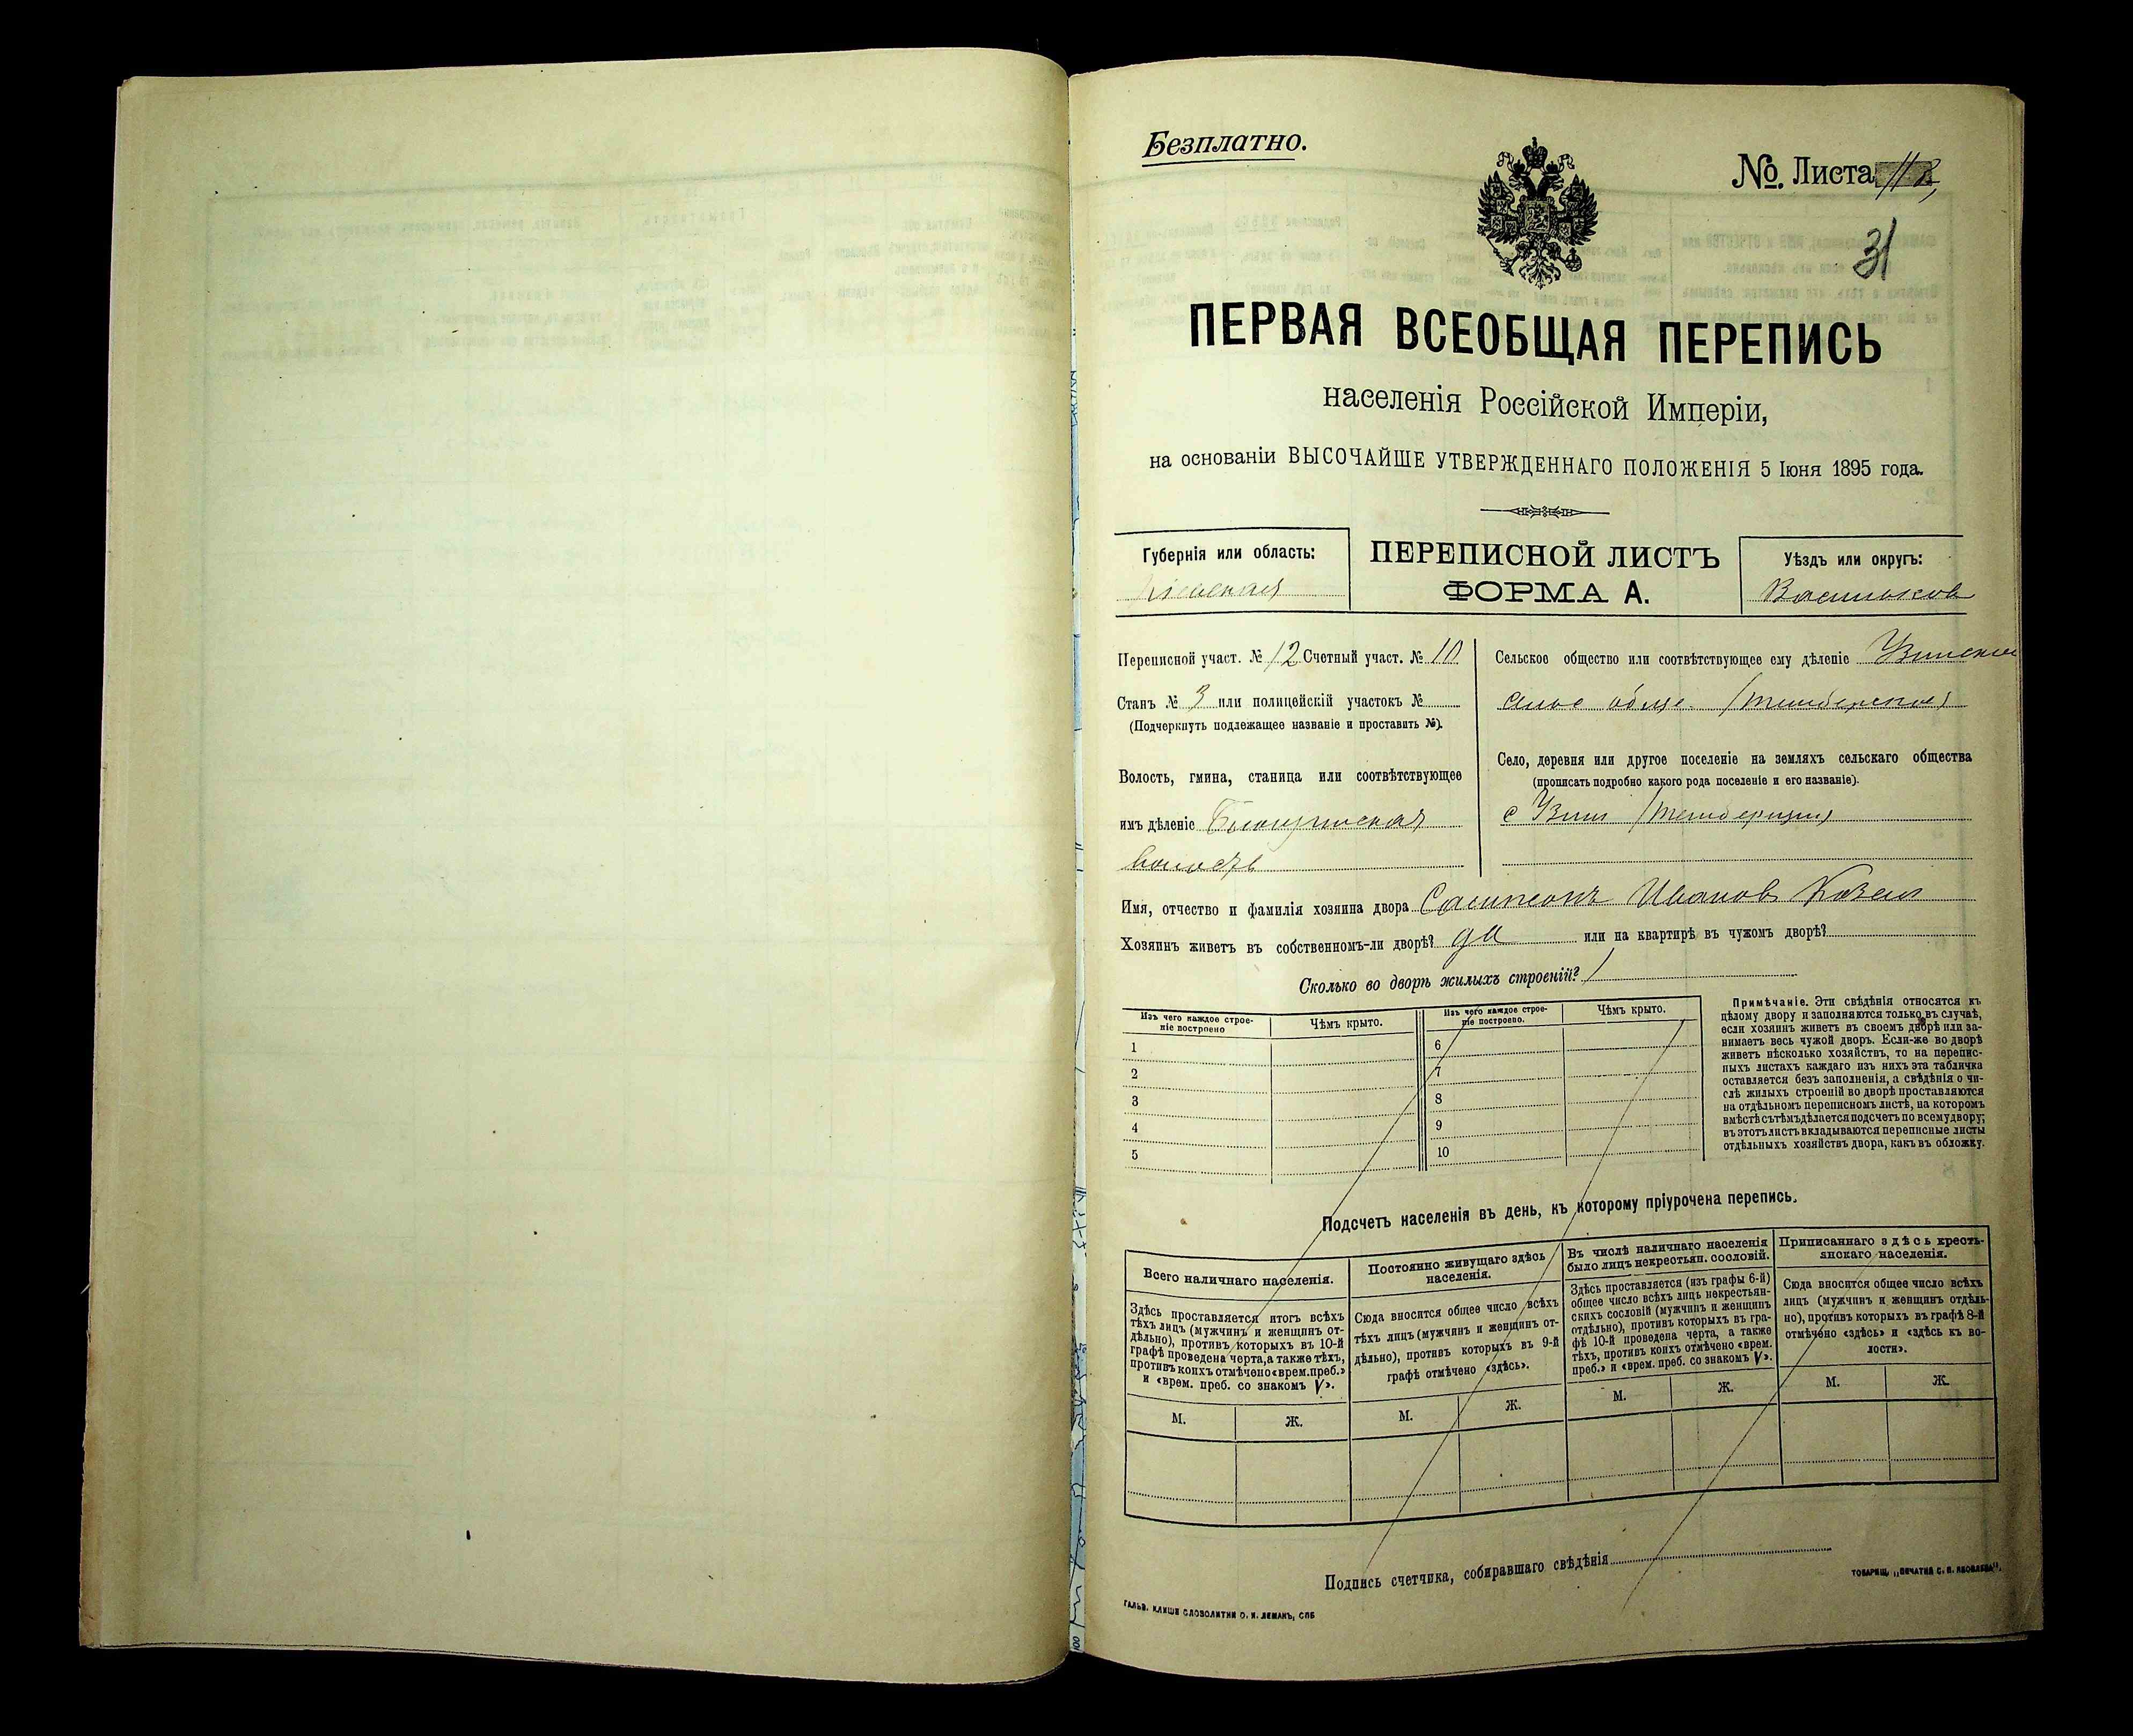 Безплатно.
№. Листа 112,
31
ПЕРВАЯ ВСЕОБЩАЯ ПЕРЕПИСЬ
населенія Россійской Имперіи,
на основаніи ВЫСОЧАЙШЕ УТВЕРЖДЕННАГО ПОЛОЖЕНІЯ 5 Іюня 1895 года.
Губернія или область:
Кіевская
ПЕРЕПИСНОЙ ЛИСТЪ
ФОРМА А.
Уѣздъ или округъ:
Васильков
Переписной участ. № 12 Счетный участ. № 10
Станъ № 3 или полицейскій участокъ №
(Подчеркнуть подлежащее названіе и проставить №).
Волость, гмина, станица или соотвѣтствующее
имъ дѣленіе
волость
Сельское общество или соотвѣтствующее ему дѣленіе Узинское
Село, деревня или другое поселеніе на земляхъ сельскаго общества
(прописать подробно какого рода поселеніе и его названіе).
с Узин
Имя, отчество и фамилія хозяина двора Иванов Козел
Хозяинъ живетъ въ собственномъ-ли дворѣ? да или на квартирѣ въ чужомъ дворѣ?
Сколько во дворѣ жилыхъ строеній? 1
Изъ чего каждое строе-
ніе построено
Чѣмъ крыто.
Изъ чего каждое строе-
ніе построено.
Чѣмъ крыто.
1
2
3
4
5
6
7
8
9
10
Примѣчаніе. Эти свѣдѣнія относятся къ
цѣлому двору и заполняются только въ случаѣ,
если хозяинъ живетъ въ своемъ дворѣ или за-
нимаетъ весь чужой дворъ. Если-же во дворѣ
живетъ нѣсколько хозяйствъ, то на перепис-
ныхъ листахъ каждаго изъ нихъ эта табличка
оставляется безъ заполненія, а свѣдѣнія о чи-
слѣ жилыхъ строеній во дворѣ проставляются
на отдѣльномъ переписномъ листѣ, на которомъ
вмѣстѣ съ тѣмъ дѣлается подсчетъ по всему двору;
въ этотъ листъ вкладываются переписные листы
отдѣльныхъ хозяйствъ двора, какъ въ обложку.
Подсчетъ населенія въ день, къ которому пріурочена перепись.
Всего наличнаго населенія.
Здѣсь проставляется итогъ всѣхъ
тѣхъ лицъ (мужчинъ и женщинъ от-
дѣльно), противъ которыхъ въ 10-й
графѣ проведена черта, а также тѣхъ,
противъ коихъ отмѣчено «врем. преб.»
и «врем. преб. со знакомъ V».
М. Ж.
Постоянно живущаго здѣсь
населенія.
Сюда вносится общее число всѣхъ
тѣхъ лицъ (мужчинъ и женщинъ от-
дѣльно), противъ которыхъ въ 9-й
графѣ отмѣчено «здѣсь».
М. Ж.
Въ числѣ наличнаго населенія
было лицъ некрестьян. сословій.
Здѣсь проставляется (изъ графы 6-й)
общее число всѣхъ лицъ некрестьян-
скихъ сословій (мужчинъ и женщинъ
отдѣльно), противъ которыхъ въ гра-
фѣ 10-й проведена черта, а также
тѣхъ, противъ коихъ отмѣчено «врем.
преб.» и «врем. преб. со знакомъ V».
М. Ж.
Приписаннаго здѣсь кресть-
янскаго населенія.
Сюда вносится общее число всѣхъ
лицъ (мужчинъ и женщинъ отдѣль-
но), противъ которыхъ въ графѣ 8-й
отмѣчено «здѣсь» и «здѣсь къ во-
лости».
М. Ж.
Подпись счетчика, собиравшаго свѣдѣнія
ГАЛЬВ. КЛИШЕ СЛОВОЛИТНИ О. И. ЛЕМАНЪ, СПБ
ТОВАРИЩ. „ПЕЧАТНЯ С. П. ЯКОВЛЕВА".